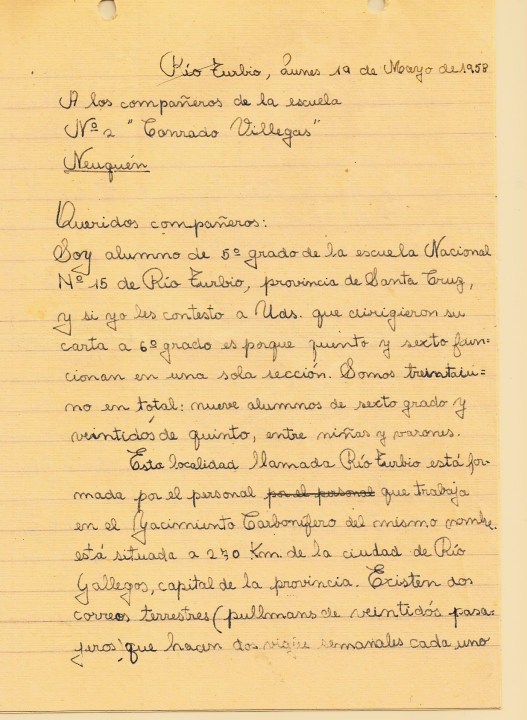 Río Turbio, Lunes 19 de Mayo de 1.958
A los compañeros de la escuela
Nº 2 "Conrado Villegas"
Neuquén
Queridos compañeros:
Soy alumno de 5º grado de la escuela Nacional
Nº 15 de Río Turbio, provincia de Santa Cruz,
y si yo les contesto a Uds. que dirigieron su
carta a 6º grado es porque quinto y sexto fun-
cionan en una sola sección. Somos treintaiu-
no en total: nueve alumnos de sexto grado y
veintidós de quinto, entre niñas y varones.
Esta localidad llamada Río Turbio está for-
mada por el personal por el personal que trabaja
en el Yacimiento Carbonífero del mismo nombre.
está situada a 270 Km. de la ciudad de Río
Gallegos, capital de la provincia. Existen dos
correos terrestres (pullmans de veintidós pasa-
jeros) que hacen dos viajes semanales cada uno